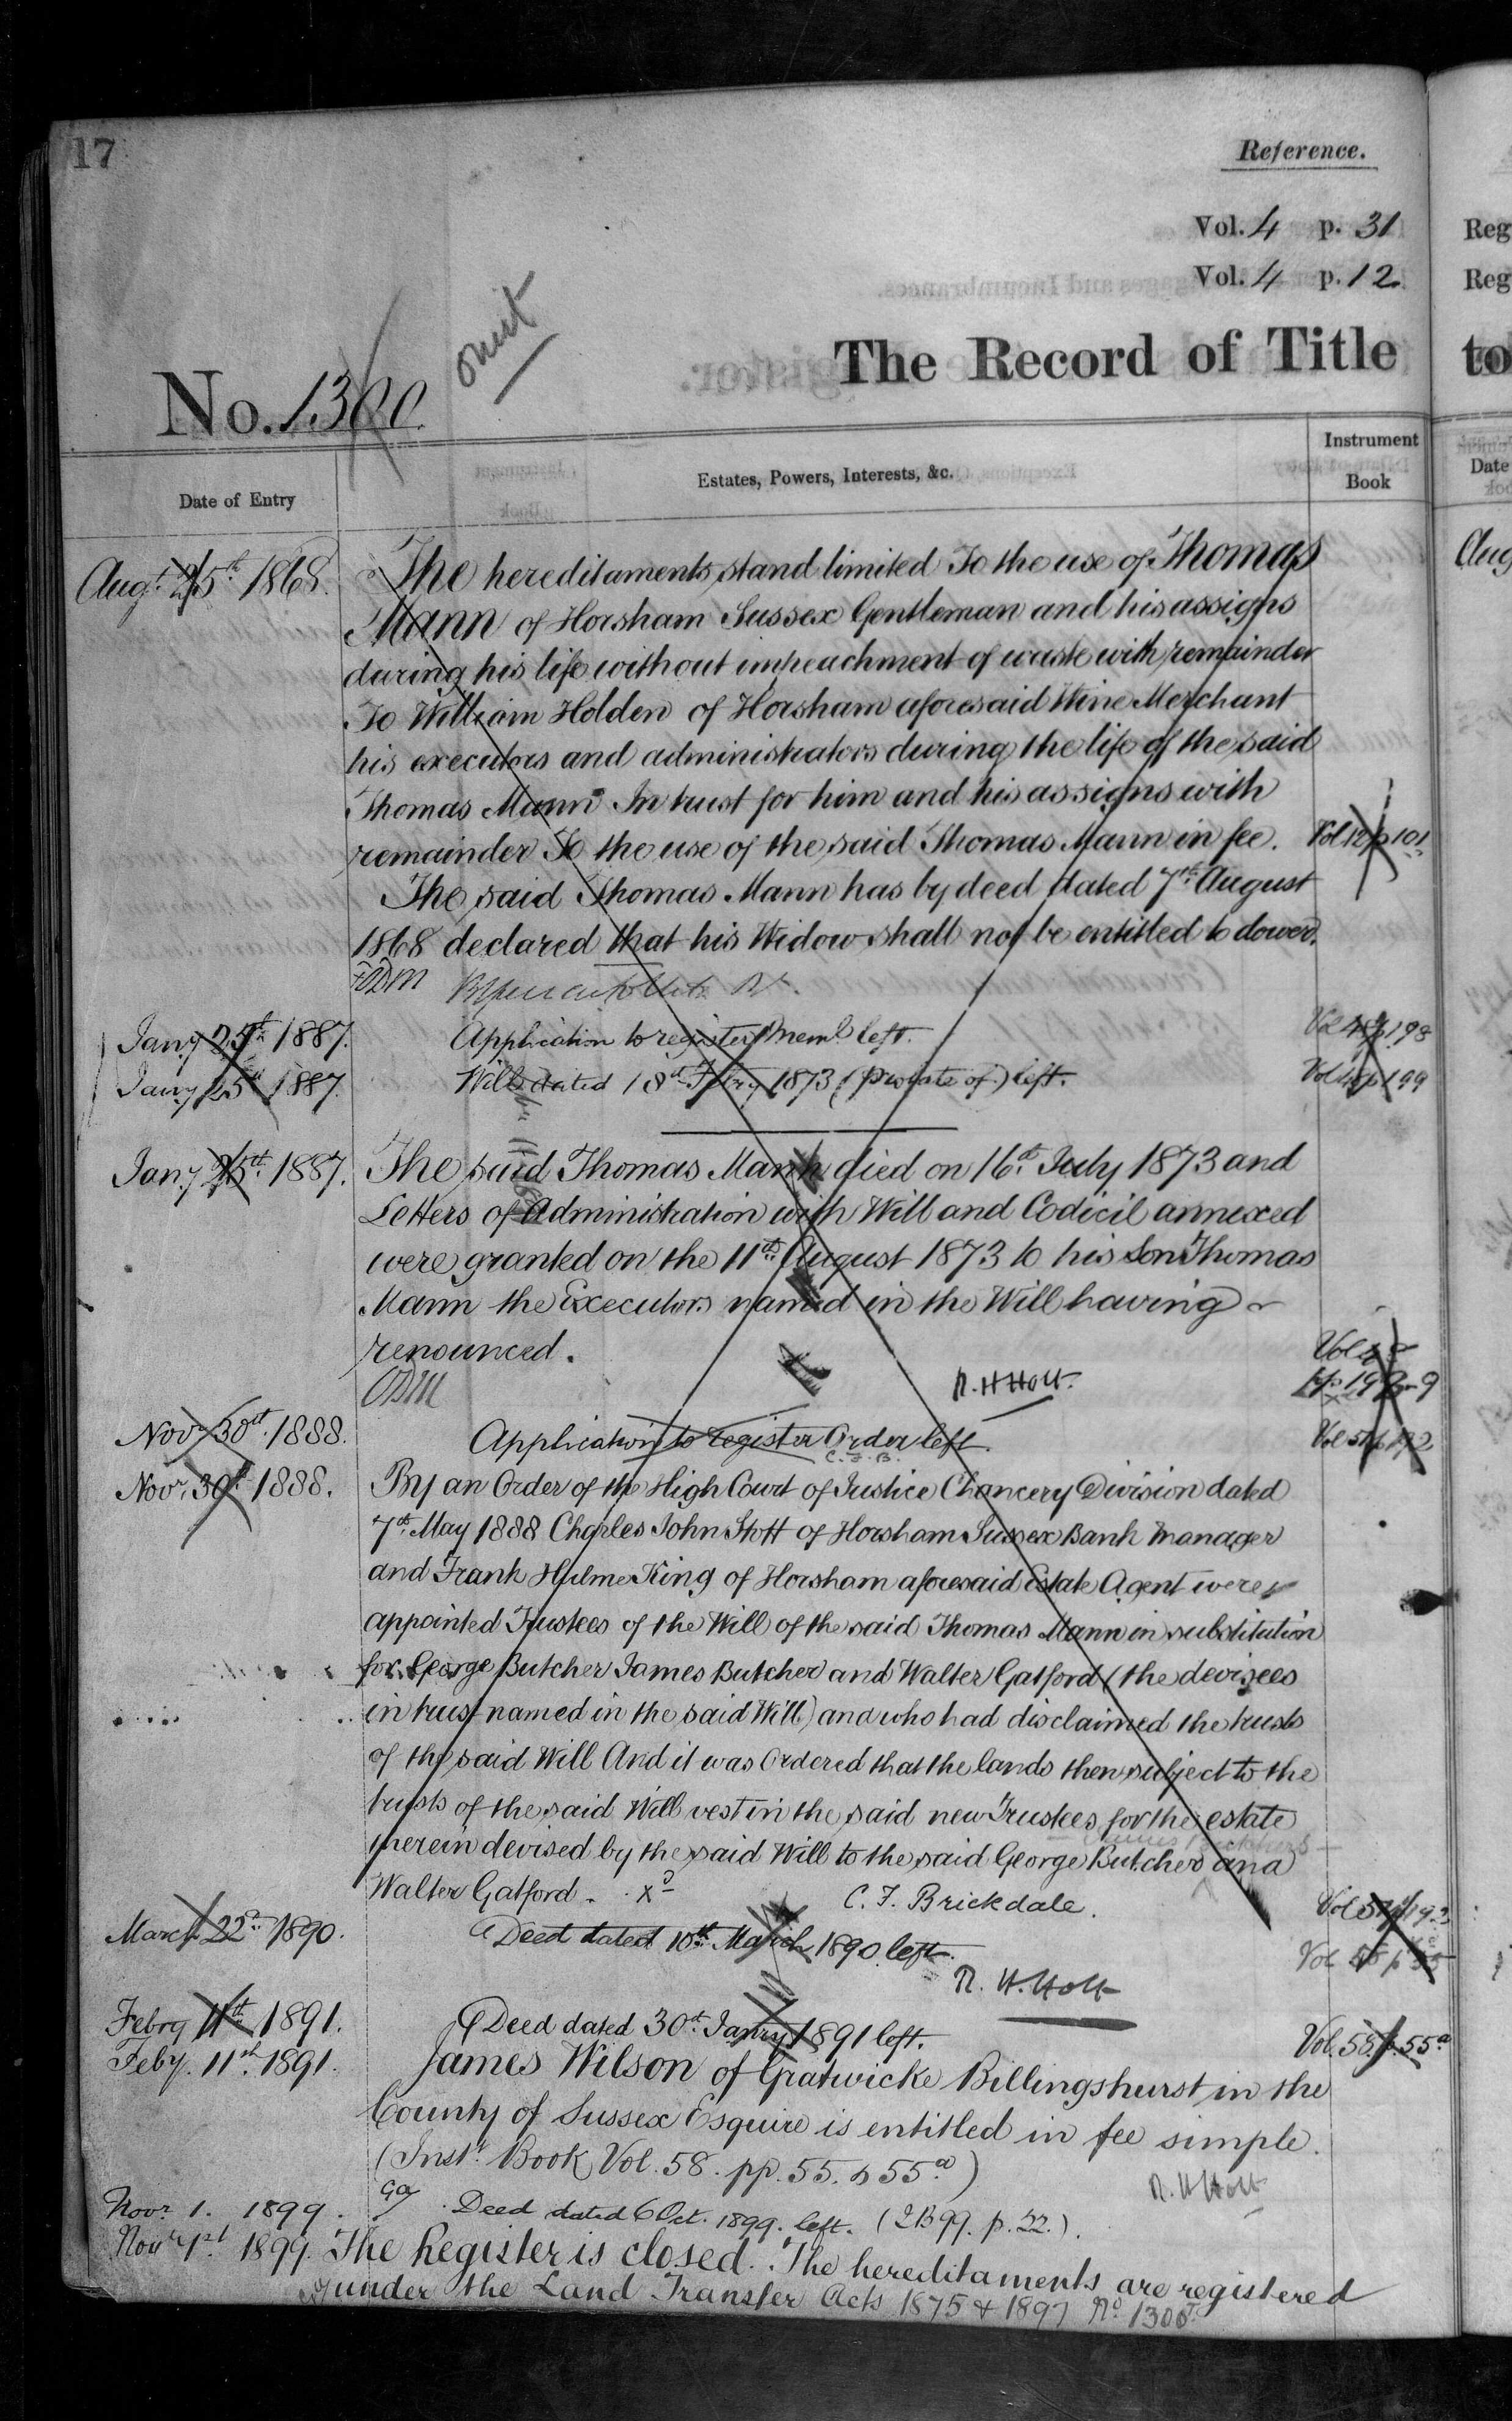 17
Reference.
Vol. 4 p. 31
Vol. 4 p. 12
omit
The Record of Title
No. 1300.
Date of Entry
Estates, Powers, Interests, &c.
Instrument Book
Augt. 25th 1868. The hereditaments stand limited To the use of Thomas
Mann of Horsham Sussex Gentleman and his assigns
during his life without impeachment of waste with remainder
To William Holden of Horsham aforesaid Wine Merchant
his executors and administrators during the life of the said
Thomas Mann In trust for him and his assigns with
remainder To the use of the said Thomas Mann in fee. Vol 12 p 101
The said Thomas Mann has by deed dated 7th August
1868 declared that his Widow shall not be entitled to dower.
Jany 25th 1887. Application to register Meml left. Vol 48 p 198
Jany 25th 1887. Will dated 18th Febry 1873 (Probate of) left. Vol 48 p 199
Jany 25th 1887. The said Thomas Mann died on 16th July 1873 and
Letters of Administration with Will and Codicil annexed
were granted on the 11th August 1873 to his Son Thomas
Mann the Executors named in the Will having
renounced. Vol 48
ODM R. H Holt. pp 198-9
Novr 30th 1888. Application to register Order left. Vol 51 p 192
C. F. B.
Novr. 30th 1888. By an Order of the High Court of Justice Chancery Division dated
7th May 1888 Charles John Stott of Horsham Sussex Bank Manager
and Frank Hulme King of Horsham aforesaid Estate Agent were
appointed Trustees of the Will of the said Thomas Mann in substitution
for George Butcher James Butcher and Walter Gatford (the devisees
in trust named in the said Will) and who had disclaimed the trusts
of the said Will And it was Ordered that the lands then subject to the
trusts of the said Will vest in the said new Trustees for the estate
therein devised by the said Will to the said George Butcher and
Walter Gatford. xd C. F. Brickdale. Vol 51 p 193
March 22d 1890. Deed dated 10th March 1890 left. Vol 55 p 35
R. H. Holt
Febry 11th 1891. Deed dated 30th Janry 1891 left. Vol. 58 p. 55a
Feby. 11th 1891. James Wilson of Gratwicke Billingshurst in the
County of Sussex Esquire is entitled in fee simple.
(Instt. Book Vol. 58. pp. 55. & 55a)
R. H Holt
Novr. 1. 1899. Deed dated 6 Oct. 1899. left. (IB 99. p. 22.).
Novr 1st. 1899. The Register is closed. The hereditaments are registered
under the Land Transfer Acts 1875 & 1897 No 1300.
Reg
Reg
to
Date
Aug